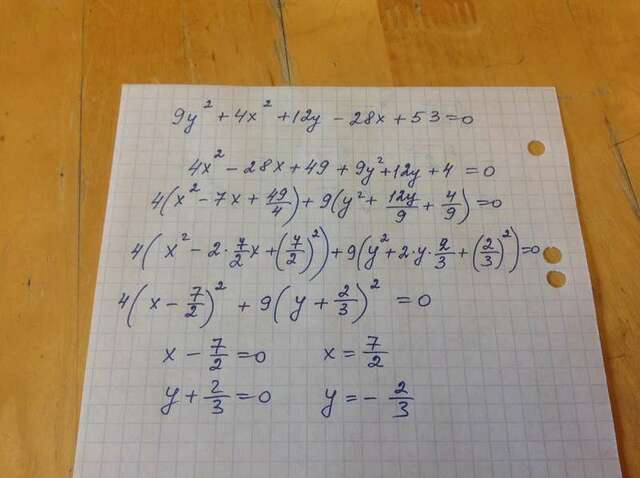 9y² + 4x² + 12y - 28x + 53 = 0
4x² - 28x + 49 + 9y² + 12y + 4 = 0
4(x² - 7x + 49/4) + 9(y² + 12y/9 + 4/9) = 0
4(x² - 2·7/2x + (7/2)²) + 9(y² + 2·y·2/3 + (2/3)²) = 0
4(x - 7/2)² + 9(y + 2/3)² = 0
x - 7/2 = 0 x = 7/2
y + 2/3 = 0 y = - 2/3